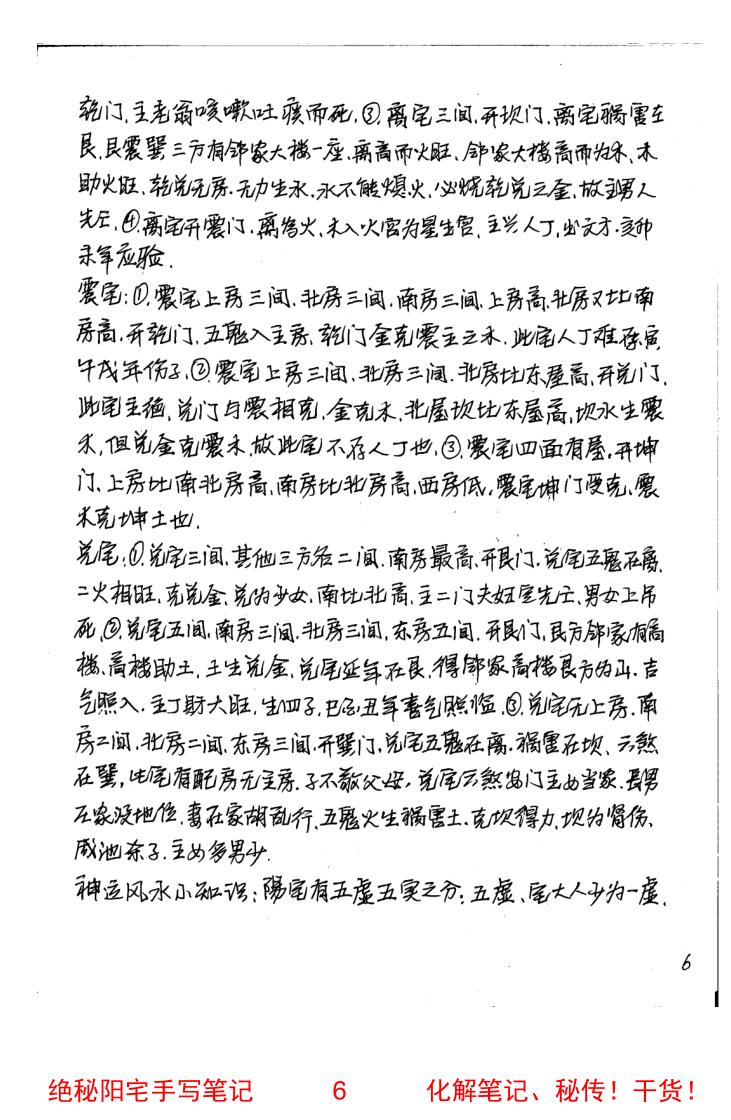 乾门,主老翁咳嗽吐痰而死,③离宅三间,开坎门,离宅祸害在
艮,艮震巽三方有邻家大楼一座,离高而火旺,邻家大楼高而为木,木
助火旺,乾兑无房.无力生水,水不能熄火,必烧乾兑之金,故主男人
先亡,④离宅开震门,离为火,木入火宫为星生宫,主兴人丁,出文才.亥卯
未年应验.
震宅:①,震宅上房三间,北房三间,南房三间,上房高,北房又比南
房高,开乾门,五鬼入主房,乾门金克震主之木,此宅人丁难存,寅
午戌年伤子,②震宅上房三间,北房三间.北房比东屋高,开兑门,
此宅主绝,兑门与震相克,金克木,北屋坎比东屋高,坎水生震
木,但兑金克震木,故此宅不存人丁也,③,震宅四面有屋,开坤
门,上房比南北房高,南房比北房高,西房低,震宅坤门受克,震
木克坤土也.
兑宅:①兑宅三间,其他三方各二间,南房最高,开艮门.兑宅五鬼在离,
二火相旺,克兑金,兑为少女,南比北高,主二门夫妇室先亡,男女上吊
死,②,兑宅五间,南房三间,北房三间,东房五间,开艮门,艮方邻家有高
楼,高楼助土,土生兑金,兑宅延年在艮,得邻家高楼艮方为山.吉
气照入.主丁财大旺,生四子,巳酉丑年喜气照临.③,兑宅无上房.南
房二间,北房二间,东房三间.开巽门,兑宅五鬼在离.祸害在坎、六煞
在巽,此宅有配房无主房.子不敬父母,兑宅六煞安门主女当家.長男
在家没地位.妻在家胡乱行,五鬼火生祸害土.克坎得力,坎为肾伤,
咸池杀子.主女多男少.
神运风水小知识:陽宅有五虚五实之分:五虚、宅大人少为一虚,
6
绝秘阳宅手写笔记 6 化解笔记、秘传！干货！